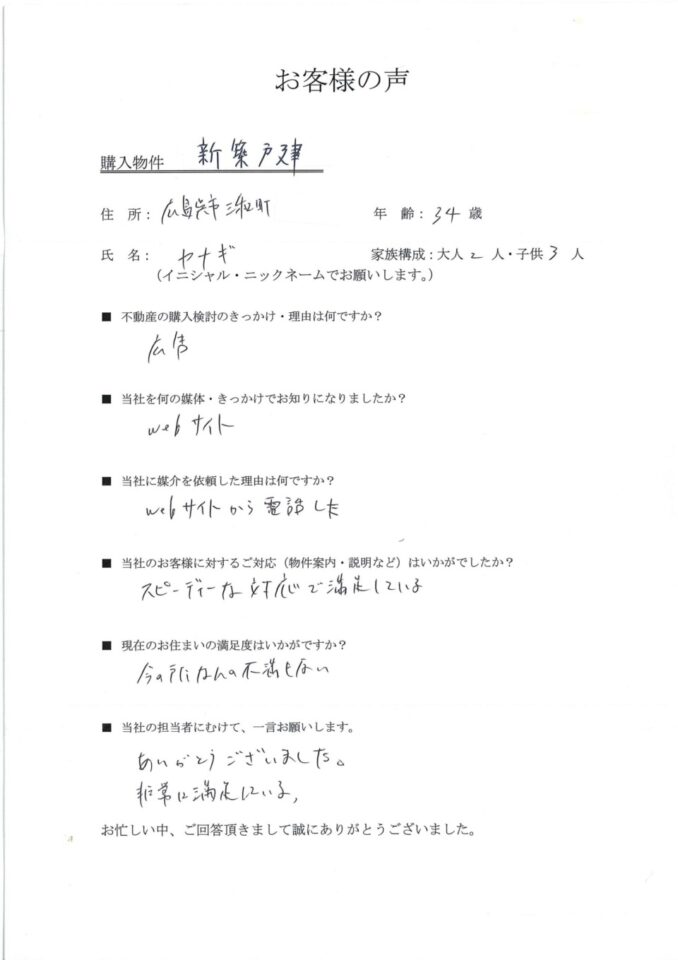 お客様の声
購入物件 新築戸建
住 所: 広島呉市三和町 年 齢:34歳
氏 名: ヤナギ 家族構成:大人2人・子供3人
(イニシャル・ニックネームでお願いします。)
■ 不動産の購入検討のきっかけ・理由は何ですか?
広告
■ 当社を何の媒体・きっかけでお知りになりましたか?
webサイト
■ 当社に媒介を依頼した理由は何ですか?
webサイトから電話した
■ 当社のお客様に対するご対応(物件案内・説明など)はいかがでしたか?
スピーディーな対応で満足している
■ 現在のお住まいの満足度はいかがですか?
今の所なんの不満もない
■ 当社の担当者にむけて、一言お願いします。
ありがとうございました。
非常に満足している。
お忙しい中、ご回答頂きまして誠にありがとうございました。